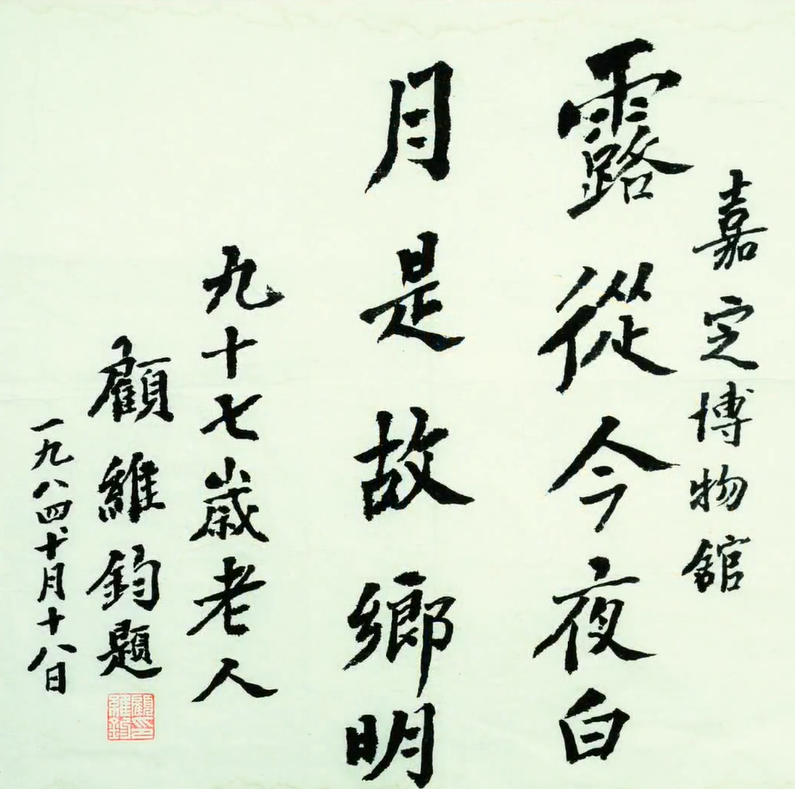 嘉定博物舘
露從今夜白
月是故鄉明
九十七歲老人
顧維鈞題
一九八四十月十八日
顧維鈞印